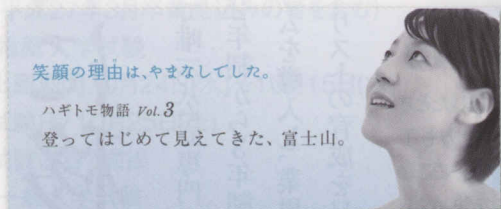 笑顔の理由は、やまなしでした。
ハギトモ物語 Vol.3
登ってはじめて見えてきた、富士山。